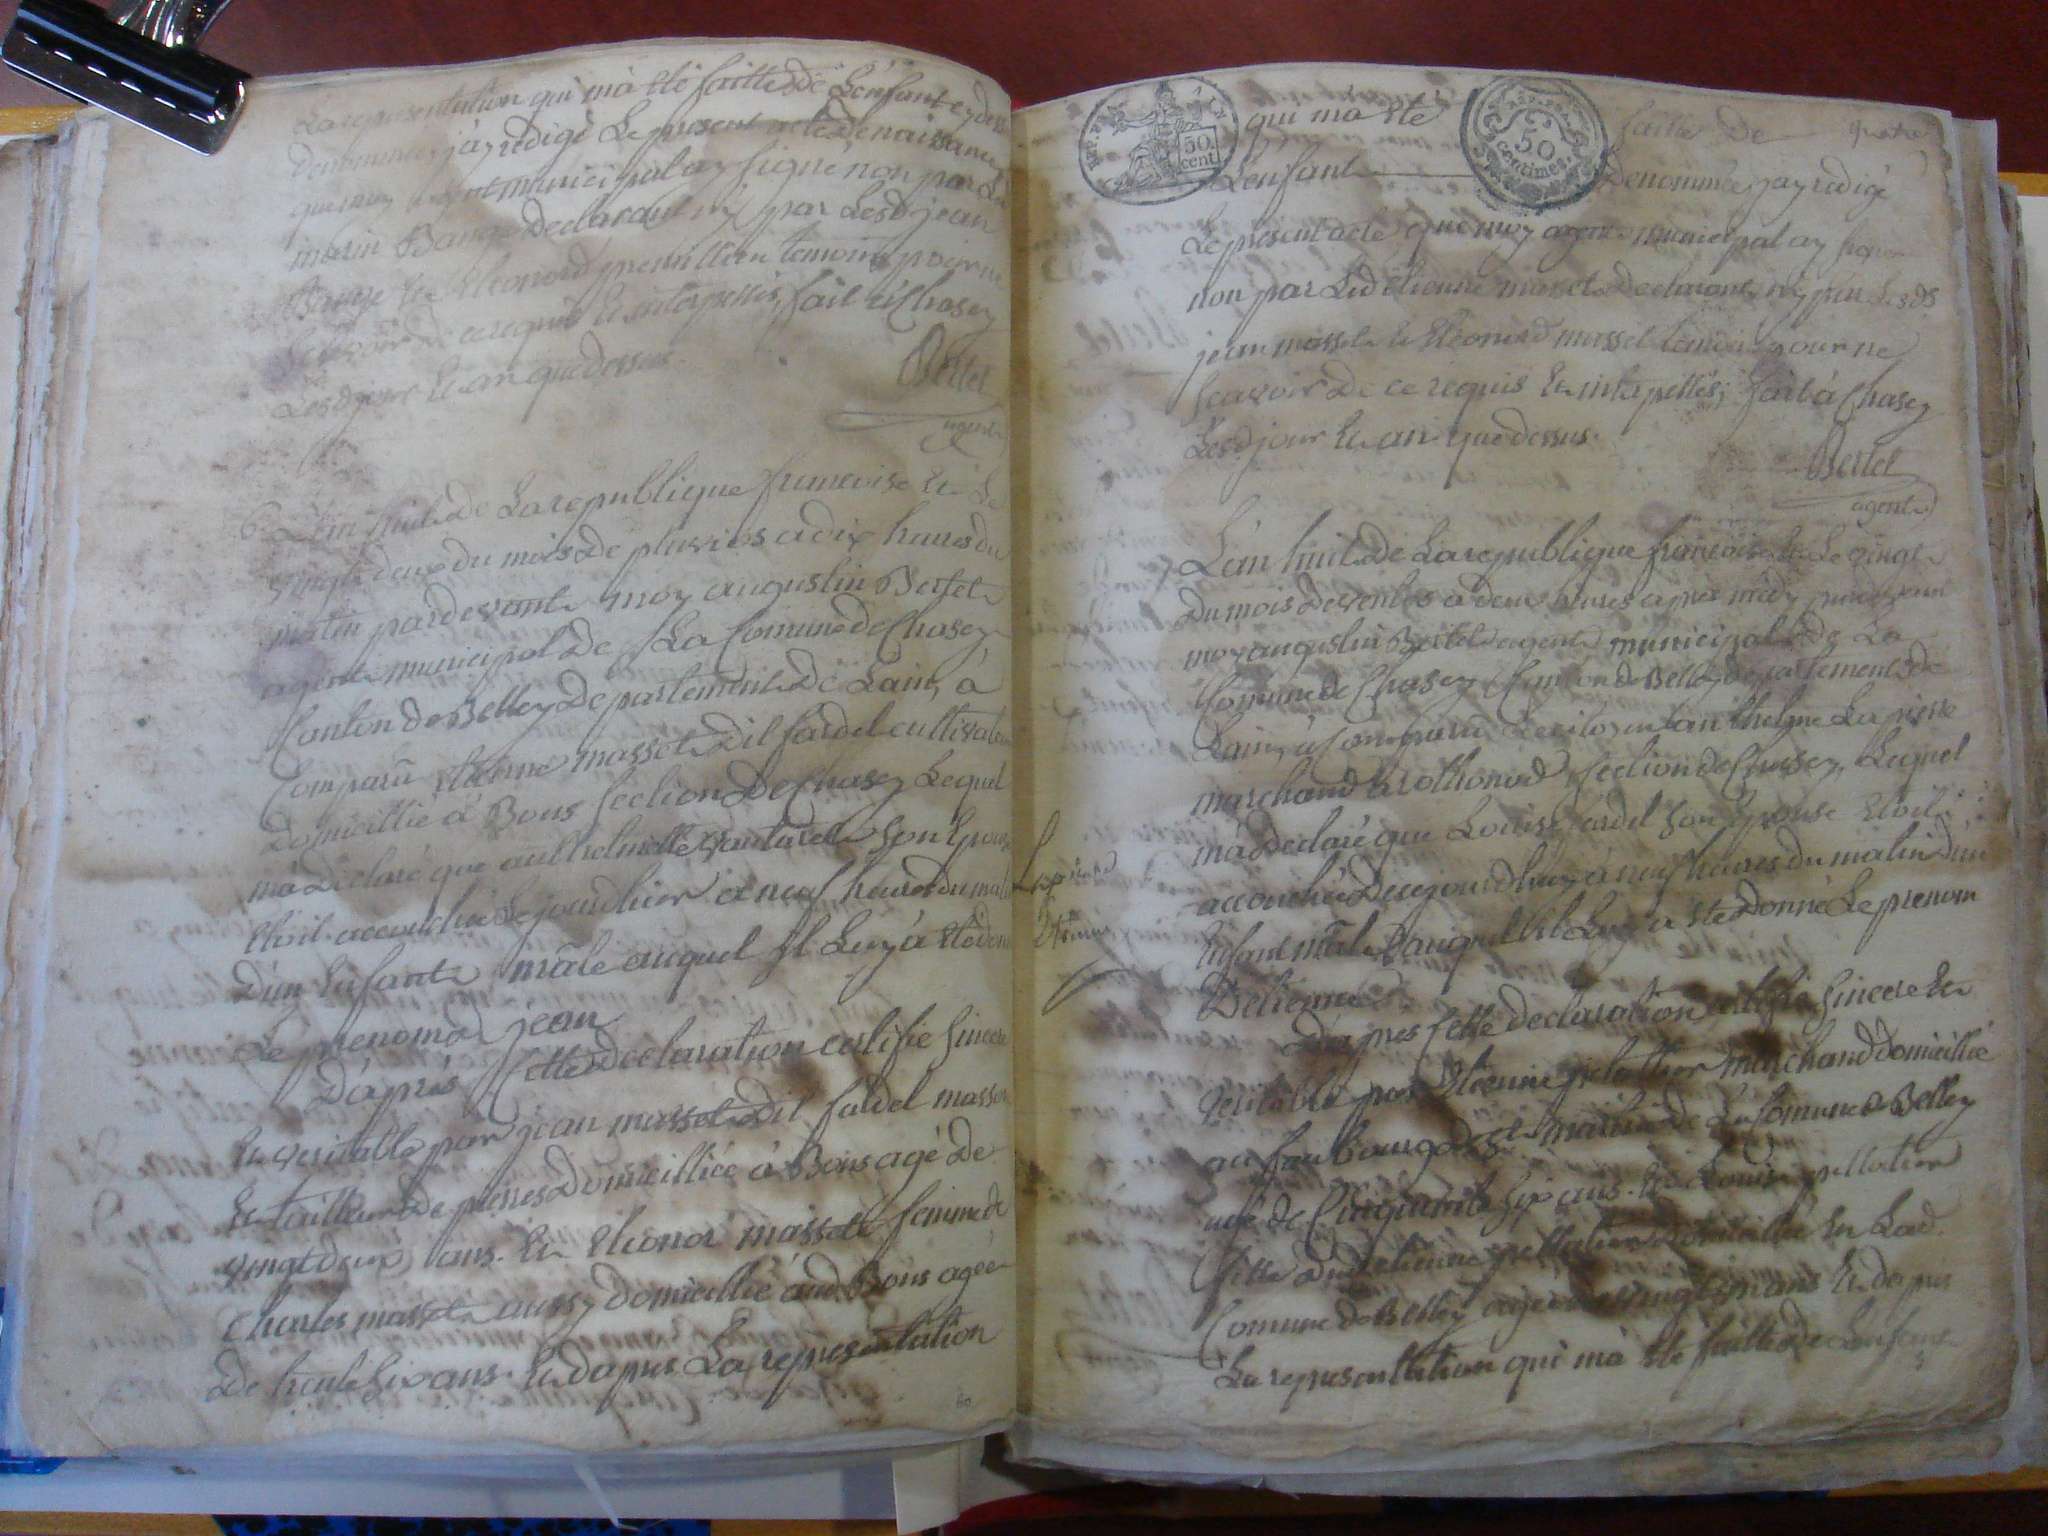 La representation qui m'a été faitte de L'enfant cy dess
denommé, j'ay redigé Le present acte de naissance
que moy agent municipal ay signé non par Le
Bauge Declarant ny par Lesd. jean
Bauge et Eleonord temoins pour ne
sçavoir de ce requis et interpellés, fait à Chasey
Lesd. jour et an que dessus.
Bertet
agent
6e L'an huit de La republique francoise et Le
vingt deux du mois de pluvios a dix heures du
matin pardevant moy augustin Bertet
agent municipal de La Comune de Chasey
Canton de Belley Departement de Lain, à
Comparu etienne masset dit fardel cultivateur
Domicillié à Bons section De Chasey Lequel
m'a Declaré que anthelmette son Epouse
Etoit accouchée Le jourdhier a neuf heures du matin
D'un Enfant mâle auquel Il Luy à Eté donné
Le prenom de jean
D'après Cette Declaration certifie sincere
Et veritable par jean masset dit fardel masson
Et tailleur de pierres Domicillié à Bons agé de
vingt deux ans. Et Eleonor masset femme de
Charles masset aussy domicillié aud. Bons agée
de trente six ans. Et dapres La representation
60
qui m'a été faitte De
REP. FRA
50.
cent.
REP. FRA
50
centimes.
L'enfant Denommé, j'ay redigé
Le present acte que moy agent municipal ay signé
non par Led. etienne masset declarant, ny par Lesds.
jean masset et Eleonord masset temoins pour ne
sçavoir de ce requis et interpellés; fait à Chasey
Lesd. jour et an que dessus.
Bertet
agent
L'an huit de La republique francoise et Le vingt
du mois de ventos a deux heures après midy pardevant
moy augustin Bertet agent municipal de La
Comune de Chasey Canton de Belley departement de
Lain, à Comparu Le citoyen anthelme Lapierre
marchand a rothonod section de Chasey, Lequel
m'a declaré que Louise fardel son Epouse Etoit
accouchée De cejourdhuy à neuf heures du matin d'un
Enfant mâle auquel Il Luy a été donné Le prenom
D'etienne
Lapierre
Etienne
D'après Cette declaration certifie sincere et
veritable par Etienne pelattier marchand domicillié
au faubourg de St martin de La Comune de Belley
agé de Cinquante six ans. Et Louise pellatier
fille dud. etienne pellatier domicillié En Lad.
Comune de Belley agée de vingt ans Et dapres
La representation qui m'a été faitte de L'enfant